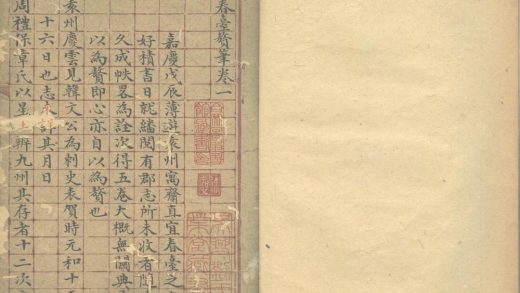 春臺贅筆卷一
嘉慶戊辰薄遊袁州寓齋直宜春臺之
好積書日就繙閱有郡志所未收者隨
久成帙畧為詮次得五卷大概無關典
以為贅即心亦自以為贅也
袁州慶雲見韓文公為刺史表賀時元和十
十六日也志未詳其月日
周禮保章氏以星土辨九州其存者十二次